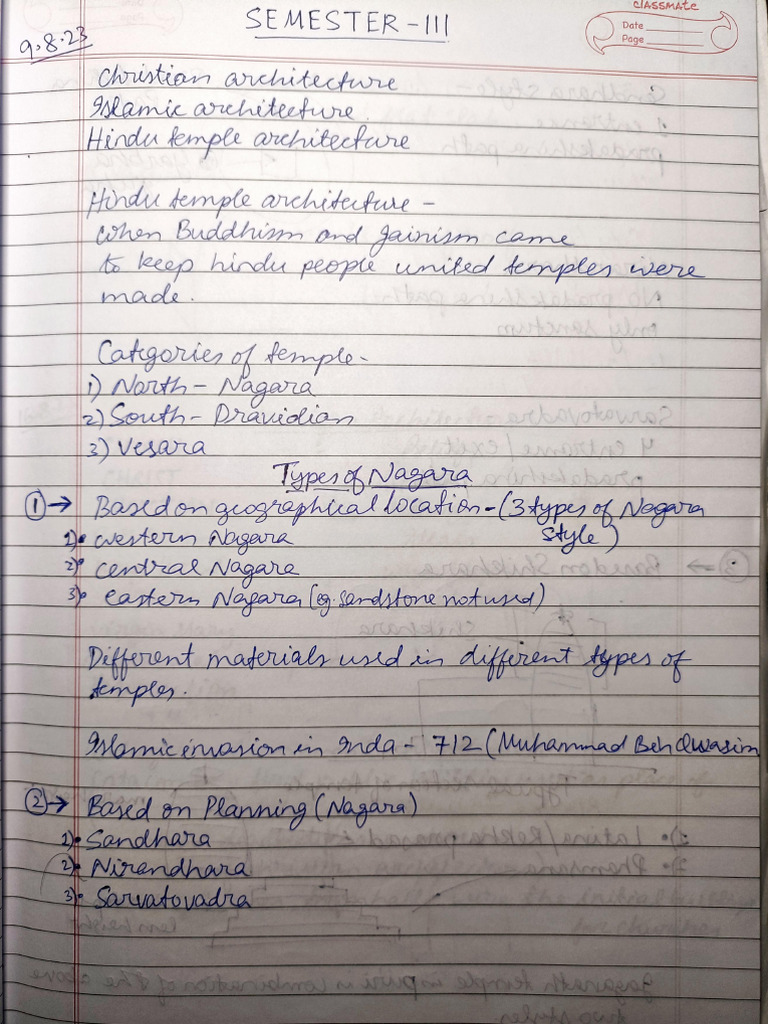 SEMESTER-III
classmate
Date
Page
9.8.23
Christian architecture
Islamic architecture.
Hindu temple architecture
Hindu temple architecture -
When Buddhism and Jainism came
to keep hindu people united temples were
made.
Categories of temple-
1) North - Nagara
2) South - Dravidian
3) Vesara
Types of Nagara
① → Based on geographical location - (3 types of Nagara
style)
1)• western Nagara
2)• central Nagara
3)• eastern Nagara (eg. sandstone not used)
Different materials used in different types of
temples.
Islamic invasion in Inda - 712 (Muhammad Beh Qwasim
② → Based on Planning (Nagara)
1)• Sandhara
2)• Nirandhara
3)• Sarvatovadra